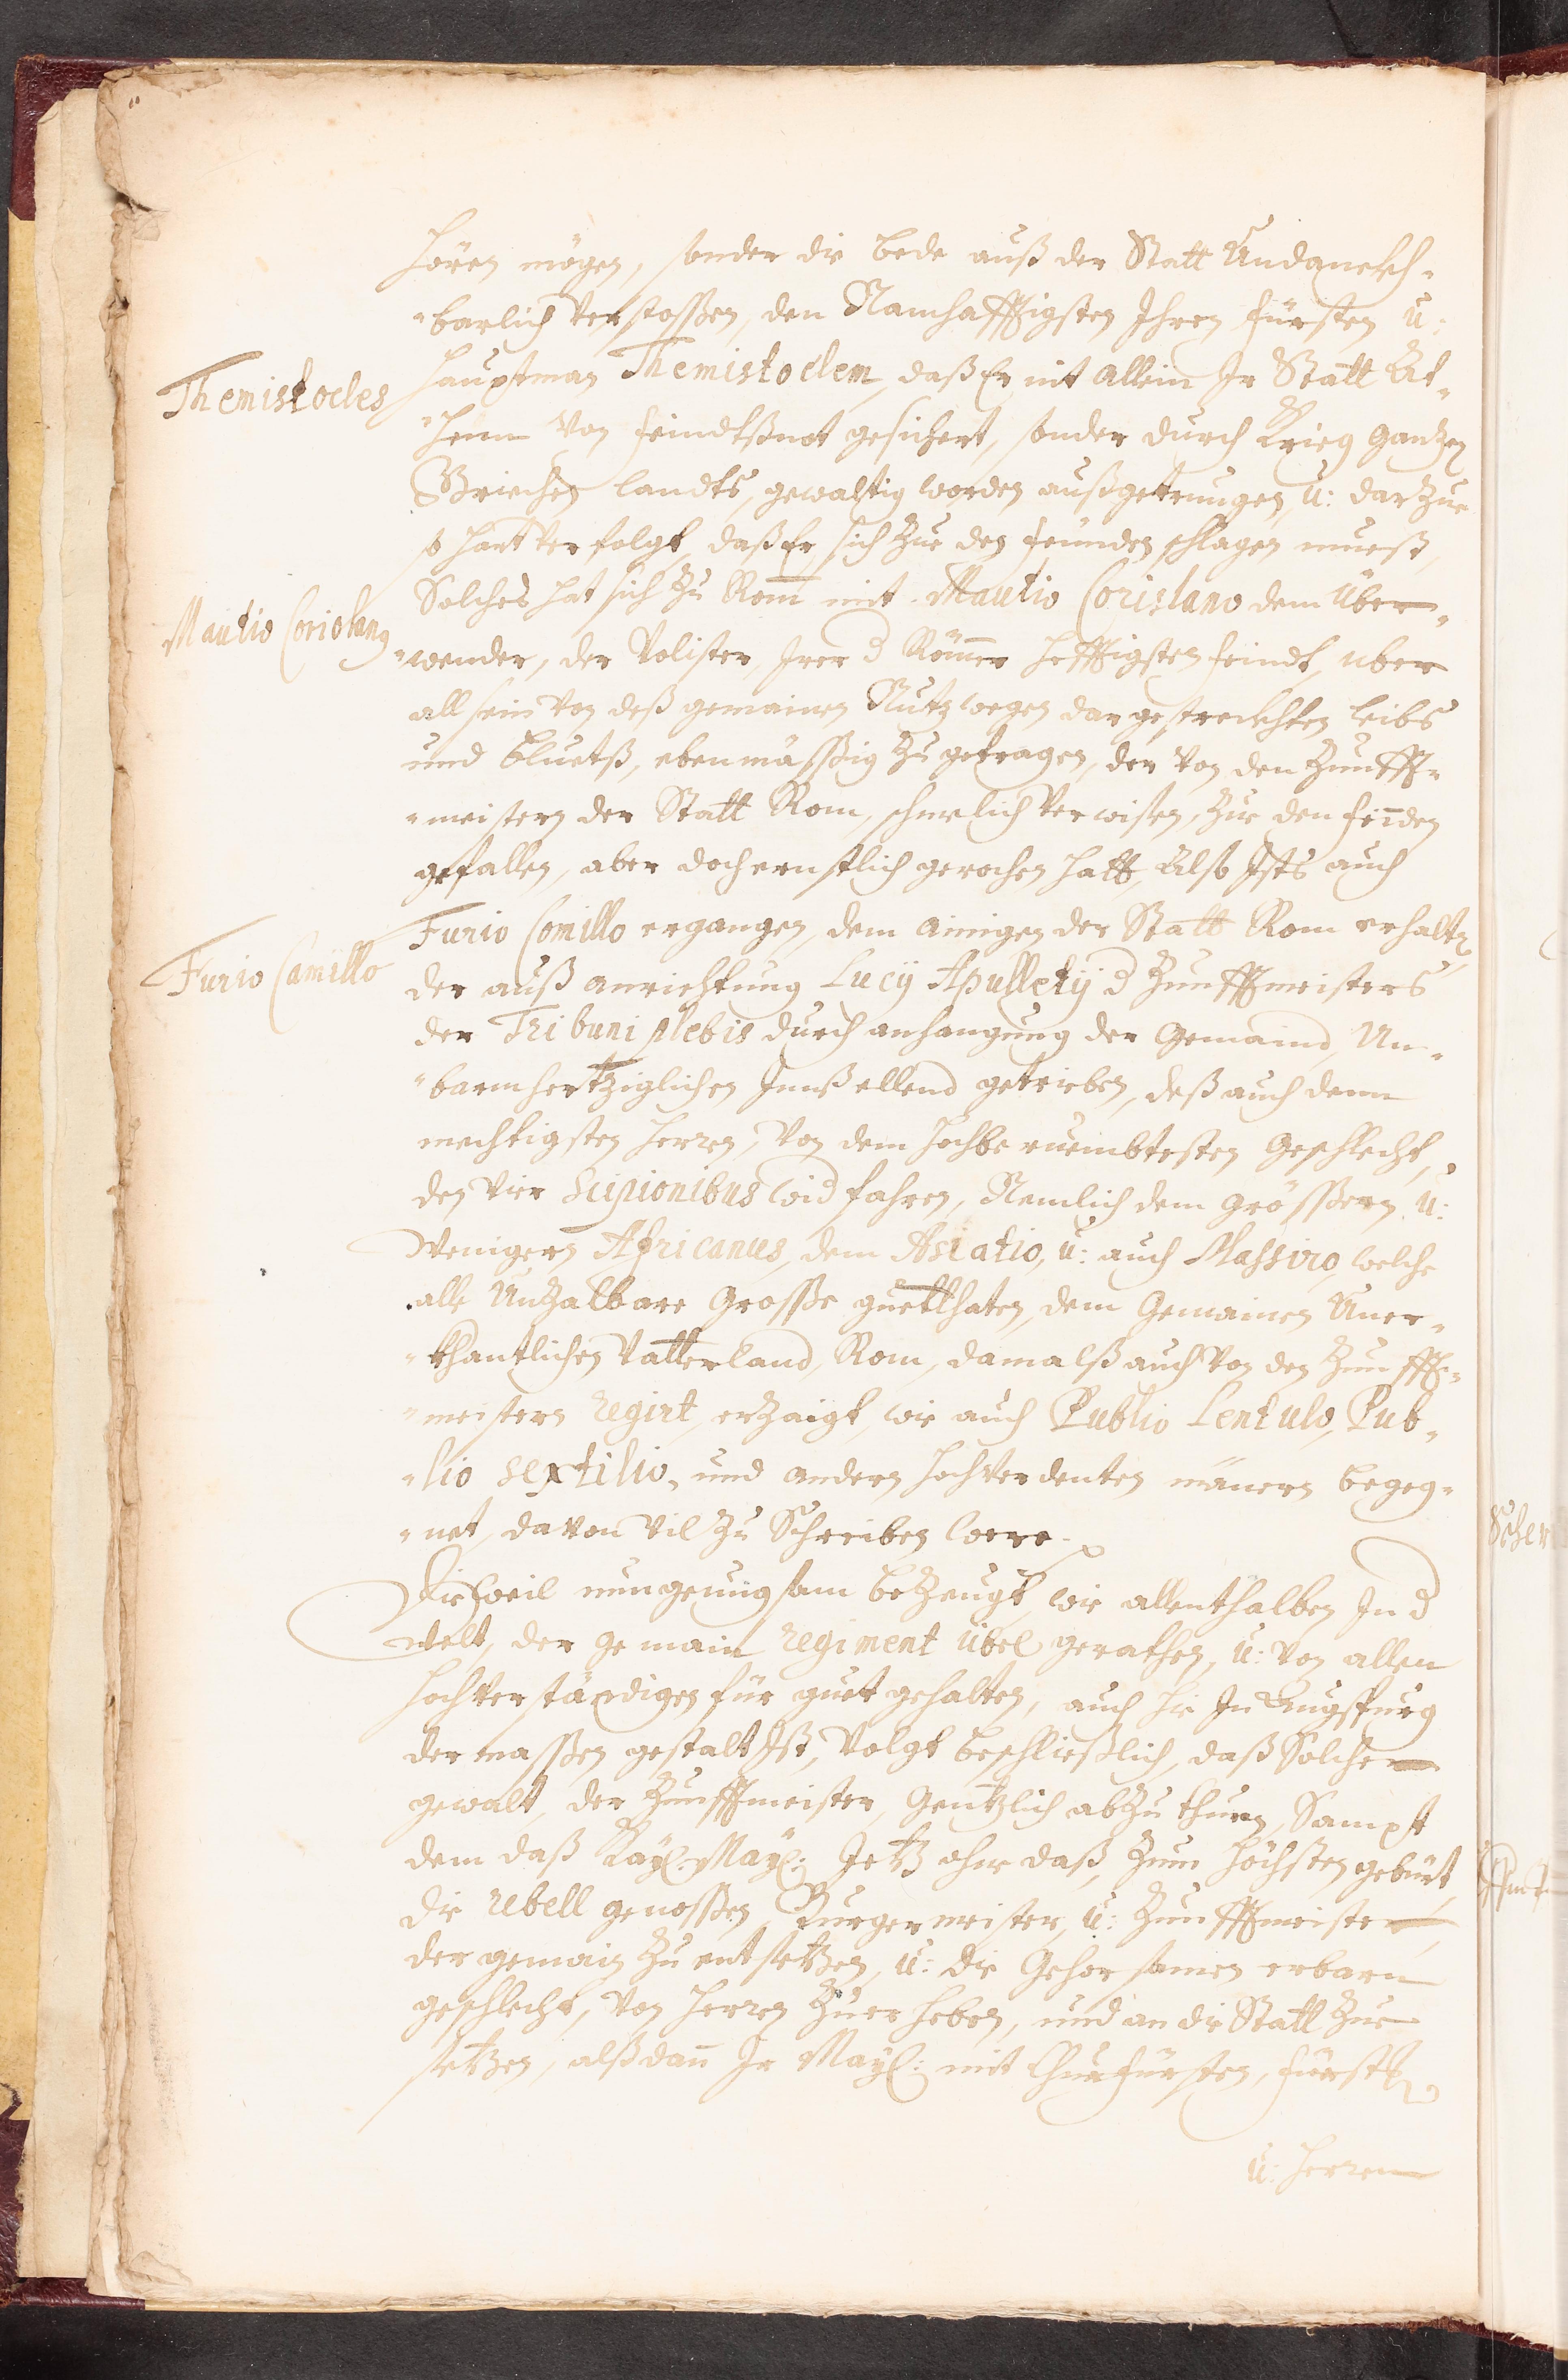 hören mögen, sonder die bede auß der Statt Undanckh-
-barlich verstossen, den Namhafftigsten Ihren fürsten u:
Themistocles
hauptman Themistoclem, daß Er nit allein Ir Statt At-
-henn von feindtßnot gesichert, sonder durch krieg gantzen
Griechen landts, gewaltig worden außgetrungen, u: darzue
so hart verfolgt, daß Er sich zue den feünden schlagen muest,
Solches hat sich zu Rom mit Mautio Corislano dem über-
Mautio Coriolano
-wender, der Volister, Irer d Römer hefftigsten feindt, uber
all sein von deß gemainen Nutz wegen dargestreckhten leibs
und bluetß, ebenmässig zu getragen, der von den Zunfft-
-meistern der Statt Rom, schmelich verwisen, zue den feinden
gefallen, aber doch ernstlich gerochen hatt, Also Ists auch
Furio Camillo
Furio Comillo ergangen, dem ainigen der Statt Rom erhalter
der auß anrichtung Lucÿ Apulletÿ d Zunfftmeisters
der Tribuni plebis durch anhangung der Gemaind, Un-
-barmhertziglichen Innß ellend getrieben, deß auch denn
mechtigsten herren, von dem hochberuembtesten Geschlecht,
den vier Scipionibus wid fahren, Nemlich dem grössern, u:
Wenigern Africanus, dem Asiatio, u: auch Massiro, welche
alle Unzalbare Grosse guetthaten, dem Gemainen Uner-
-khantlichen Vatterland, Rom, damalß auch von den Zunfft-
-meistern regirt, erzaigt, wie auch Publio Lentulo, Pub-
-lio sextilio, und andern hochverdenten mänern begeg-
-net, davon vil zu Schreiben were.
Dieweil nun genuegsam bezeugt, wie allenthalben In d
welt, der gemain regiment übel gerathen, u: von allen
hochverständigen für guet gehalten, auch hie In Augspurg
dermassen gestalt Ist, Volgt beschließlich, daß Solcher
gewalt, der Zunfftmeister, Gentzlich abzuthuen, Sampt
dem daß Kaÿ: Maÿ: Jetz ohne daß, zum höchsten gebürt,
die rebell genossen, Burgermeister, u: Zunfftmeister,
der gemain zu entsetzen, u: die Gehorsamen erbarn
geschlecht, von herren zuerheben, und an die Statt zue
setzen, alßdann Ir Maÿ: mit Churfürsten, fürsten,
u: herren